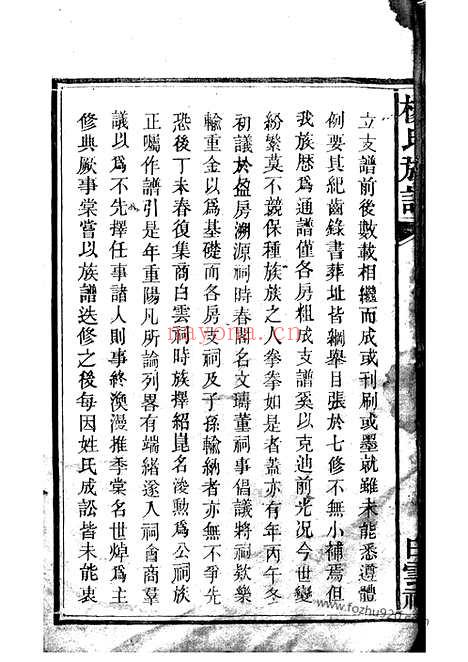 楊氏族譜
立支譜前後數載相繼而成或刊刷或墨就雖未能悉遵體
例要其紀齒錄書葬址皆綱舉目張於七修不無小補焉但
我族歷爲通譜僅各房粗成支譜奚以克迪前光况今世變
紛繁莫不競保種族族之人拳拳如是者蓋亦有年丙午冬
初議於盈房溯源祠時春闈名文璹董祠事倡議將祠欵樂
輸重金以爲基礎而各房支祠及子孫輸納者亦無不爭先
恐後丁未春復集商白雲祠時族擇紹崑名浚勲爲公祠族
正囑作譜引是年重陽凡所論列畧有端緒遂入祠會商羣
議以爲不先擇任事諸人則事終渙漫推季棠名世焯爲主
修典厥事棠嘗以族譜迭修之後每因姓氏成訟皆未能衷
白雲祠
nayona.cn
www.fozhu920